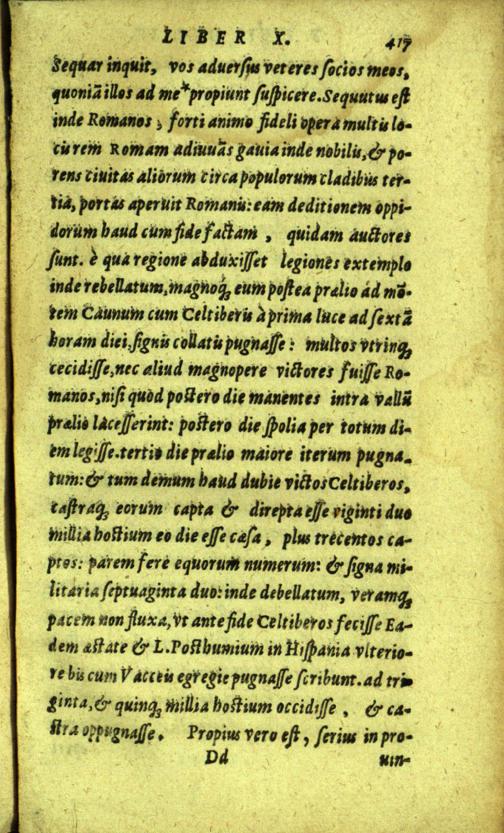 LIBER X. 417
Sequar inquit, vos aduersus veteres socios meos,
quoniā illos ad me* propiunt suspicere. Sequutus est
inde Romanos, forti animo fideli opera multis lo-
cis rem Romam adiuuās gauia inde nobilis, & po-
rens ciuitas aliorum circa populorum cladibus ter-
tia, portas aperuit Romanis: eam deditionem oppi-
dorum haud cum fide factam, quidam auctores
sunt. è qua regione abduxisset legiones extemplo
inde rebellatum, magnoq; eum postea prælio ad mō-
tem Caunum cum Celtiberis à prima luce ad sextā
horam diei, signis collatis pugnasse: multos vtrinq;
cecidisse, nec aliud magnopere victores fuisse Ro-
manos, nisi quòd postero die manentes intra vallū
prælio lacesserint: postero die spolia per totum di-
em legisse. tertio die prælio maiore iterum pugna-
tum: & tum demum haud dubie victos Celtiberos,
castraq; eorum capta & direpta esse viginti duo
millia hostium eo die esse cæsa, plus trecentos ca-
ptos: parem fere equorum numerum: & signa mi-
litaria septuaginta duo: inde debellatum, veramq;
pacem non fluxa, vt ante fide Celtiberos fecisse Ea-
dem æstate & L. Posthumium in Hispania vlterio-
re bis cum Vacceis egregie pugnasse scribunt. ad tri-
ginta, & quinq; millia hostium occidisse, & ca-
stra oppugnasse. Propius vero est, serius in pro-
Dd uin-